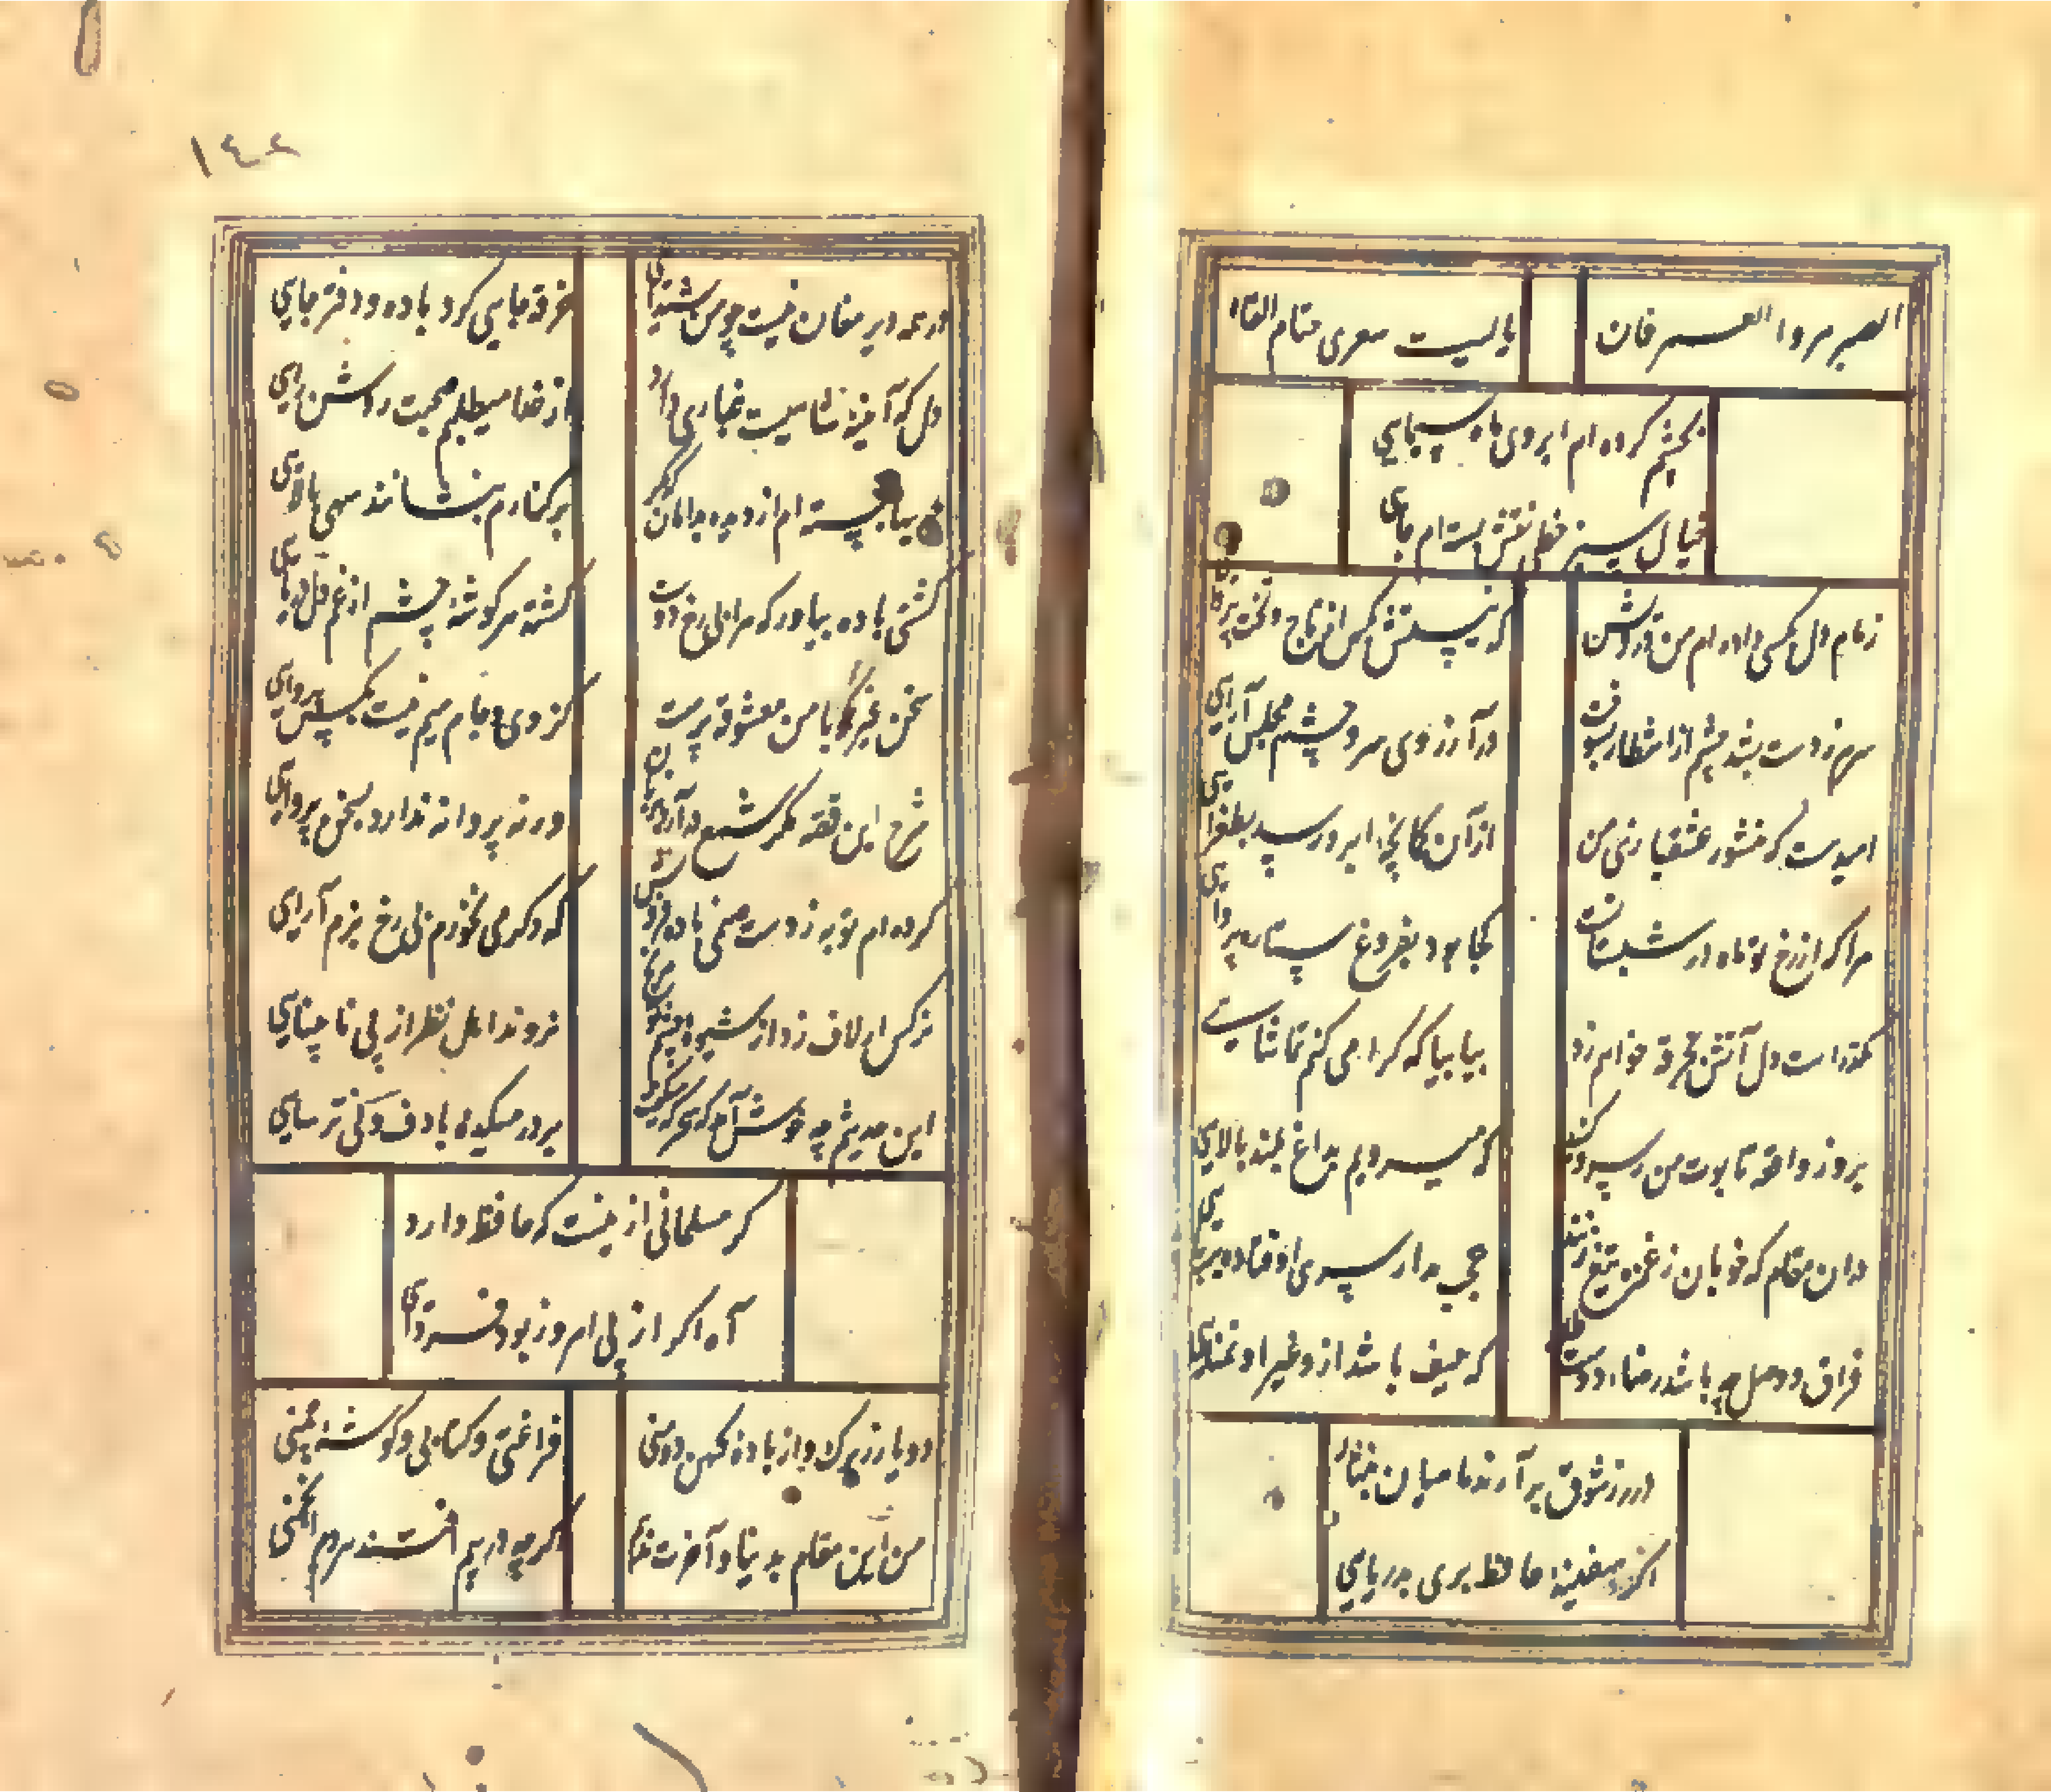 الصبر مر و العمر فان
یا لیت شعری حتام القاه
بچشم کرده ام ابروی ماه سیمایی
خیال سبز خطی نقش بسته ام جایی
زمام دل بکسی داده ام من درویش
که نیستش بکس از تاج و تخت پروایی
سرم ز دست بشد چشم از انتظار بسوخت
در آرزوی سر و چشم مجلس آرایی
امیدست که منشور عشقبازی من
از آن کمانچه ابرو رسد بطغرایی
مرا که از رخ تو ماه در شبستانست
کجا بود بفروغ ستاره پروایی
مکدرست دل آتش بخرقه خواهم زد
بیا بیا که کرا می کند تماشایی
بروز واقعه تابوت من ز سرو کنید
که میرویم بداغ بلند بالایی
در ان مقام که خوبان ز غمزه تیغ زنند
عجب مدار سری اوفتاده در پایی
فراق و وصل چه باشد رضای دوست طلب
که حیف باشد ازو غیر او تمنایی
درر ز شوق بر آرند ماهیان بنثار
اگر سفینه حافظ بری بدریایی
۱۴۲
در همه دیر مغان نیست چو من شیدایی
خرقه جایی کرو باده و دفتر جایی
دل که آیینه شاهیست غباری دارد
از خدا میطلبم صحبت روشن رایی
جویها بسته ام از دیده بدامان که مگر
بر کنارم بنشانند سهی بالایی
کشتی باده بیاور که مرا بی رخ دوست
گشته هر گوشه چشم از غم دل دریایی
سخن غیر مگو با من معشوقه پرست
کز وی و جام میم نیست بکس پروایی
شرح این قصه مگر شمع بر آرد بزبان
ورنه پروانه ندارد بسخن پروایی
کرده ام توبه بدست صنمی باده فروش
که دگر می نخورم بی رخ بزم آرایی
نرگس ار لاف زد از شیوه چشم تو مرنج
نروند اهل نظر از پی نابینایی
این حدیثم چه خوش آمد که سحرگه میگفت
بر در میکده با دف و نی ترسایی
گر مسلمانی ازینست که حافظ دارد
آه اگر از پی امروز بود فردایی
دو یار زیرک و از باده کهن دو منی
فراغتی و کتابی و گوشه چمنی
من این مقام بدنیا و آخرت ندهم
اگر چه در پیم افتند هر دم انجمنی